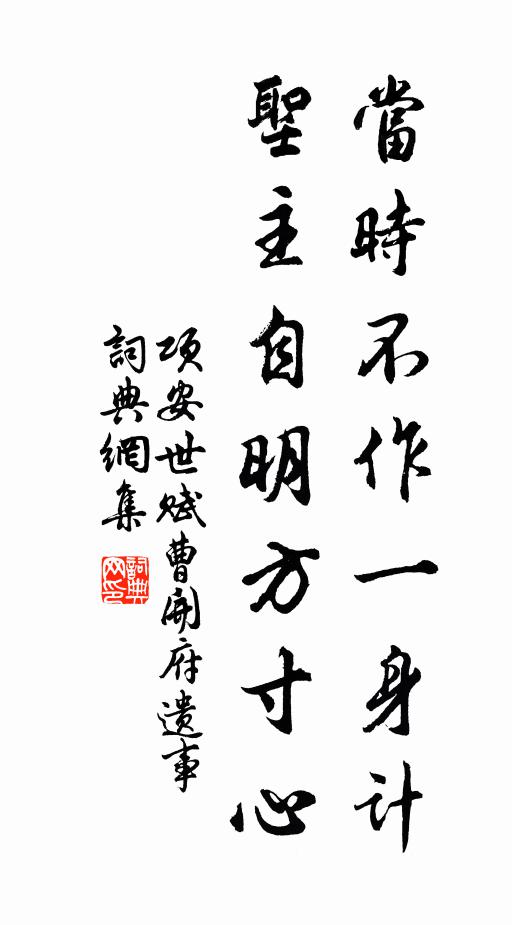 當時不作一身計
聖主自明方寸心
項安世賦曹開府遺事
詞典網集
詞典網印